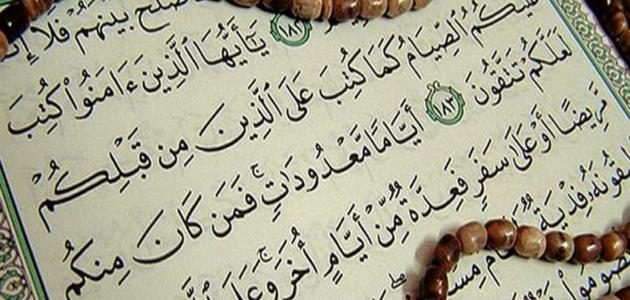 صلح بينهم فلا إ
١٨٢ يَٰٓأَيُّهَا ٱلَّذِينَ ءَامَنُوا۟ كُتِبَ
عَلَيْكُمُ ٱلصِّيَامُ كَمَا كُتِبَ عَلَى ٱلَّذِينَ مِن قَبْلِكُمْ
لَعَلَّكُمْ تَتَّقُونَ ١٨٣ أَيَّامًا مَّعْدُودَٰتٍ ۚ فَمَن كَانَ مِنكُم
مَّرِيضًا أَوْ عَلَىٰ سَفَرٍ فَعِدَّةٌ مِّنْ أَيَّامٍ أُخَرَ ۚ وَعَلَى
يقُونَهُۥ فِدْيَةٌ مِسْ